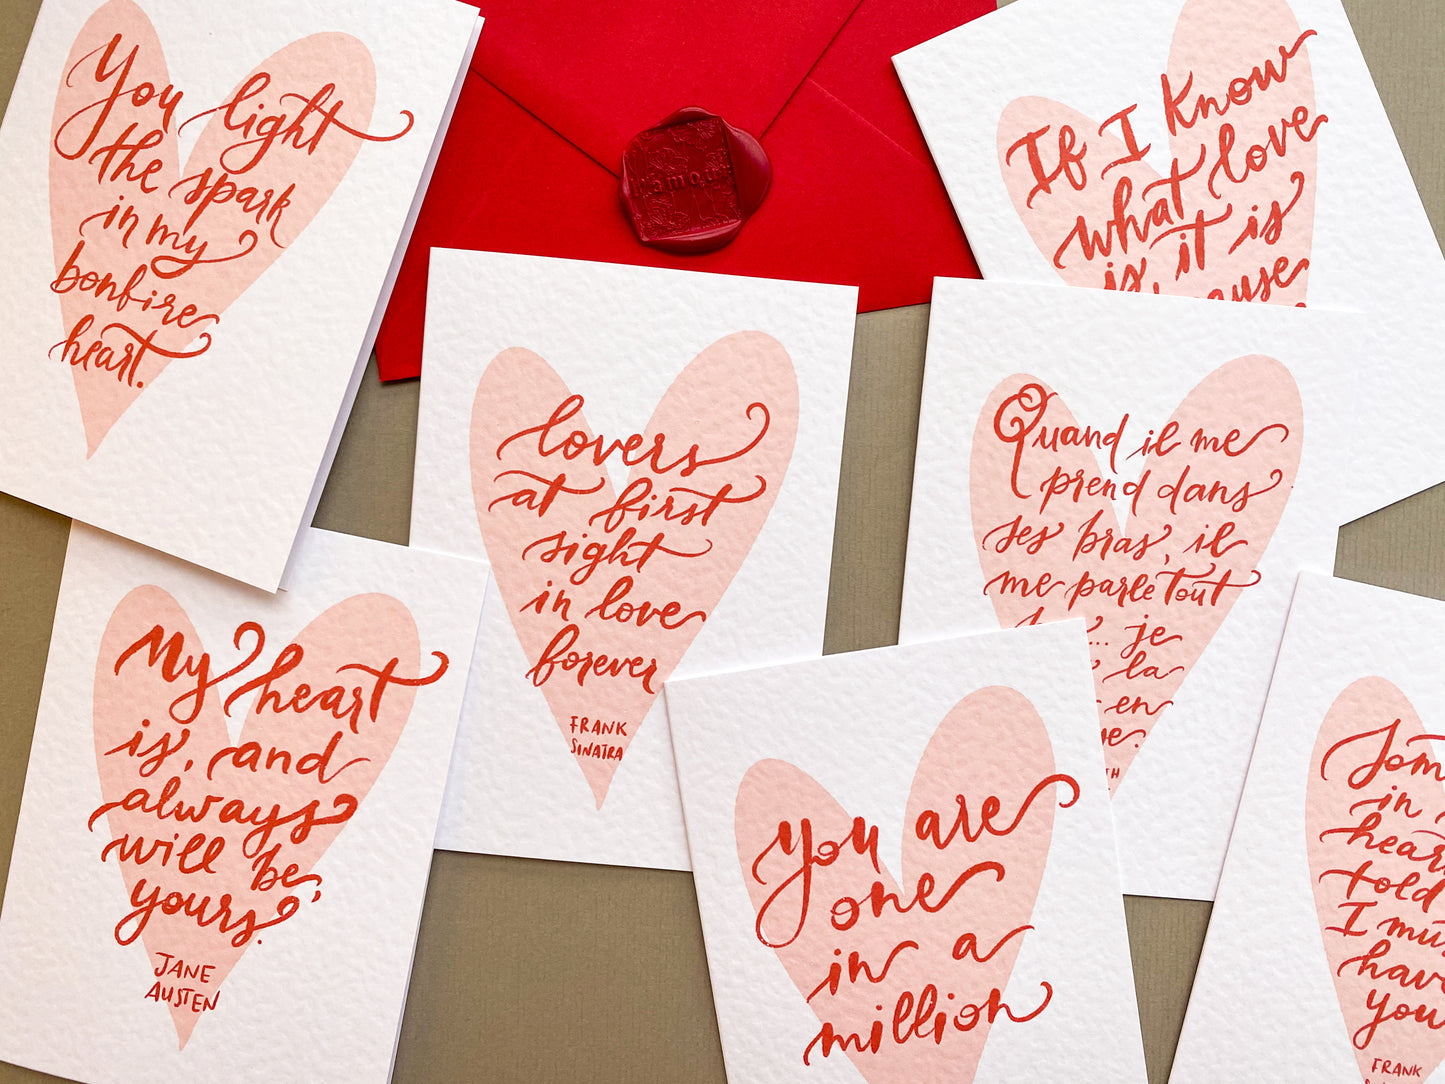 You light
the spark
in my
bonfire
heart.
amour
If I Know
what love
is, it is
lovers
at first
sight
in love
forever
FRANK
SINATRA
Quand il me
prend dans
ses bras, il
me parle tout
... je
la
en
My heart
is, and
always
will be,
yours.
JANE
AUSTEN
You are
one
in a
million
in
told
I
have
you
FRANK